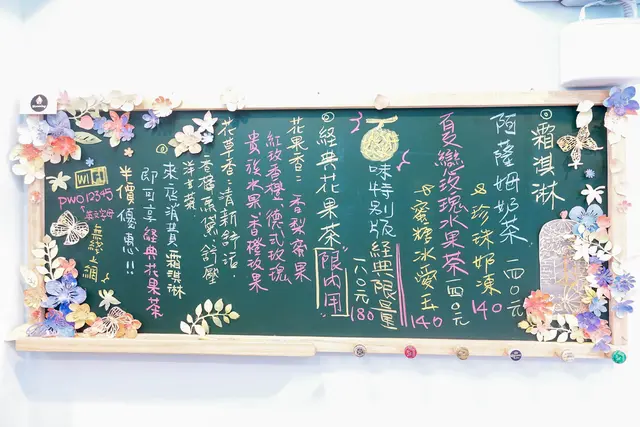 ①霜淇淋
阿薩姆奶茶一四〇元
&珍珠奶凍 140
夏戀玫瑰水果茶一四〇元
&蜜糖冰愛玉 140
口味特別版 經典限量
一八〇元 180
②經典花果茶 限內用
花果香：香梨蜜果
紅玫香橙、德式玫瑰
貴族水果、香橙玫果
花草香：清新舒活
香蜂 舒壓
洋甘菊
③來店消費霜淇淋
即可享經典花果茶
半價優惠!!
WiFi
PWO12345
英文字母
無線上網